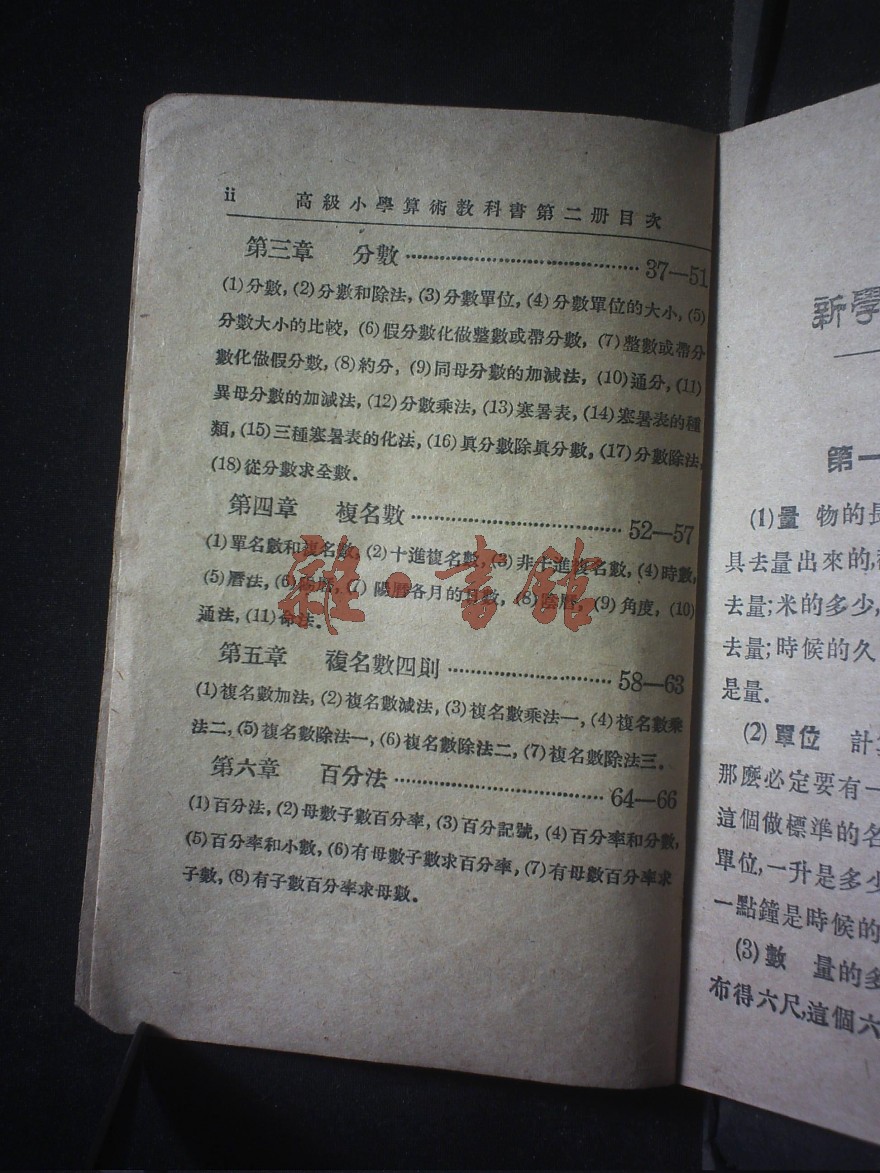 ii 高級小學算術教科書第二册目次
第三章 分數 37—51
(1)分數, (2)分數和除法, (3)分數單位, (4)分數單位的大小, (5)
分數大小的比較, (6)假分數化做整數或帶分數, (7)整數或帶分
數化做假分數, (8)約分, (9)同母分數的加減法, (10)通分, (11)
異母分數的加減法, (12)分數乘法, (13)寒暑表, (14)寒暑表的種
類, (15)三種寒暑表的化法, (16)眞分數除眞分數, (17)分數除法,
(18)從分數求全數.
第四章 複名數 52—57
(1)單名數和複名數, (2)十進複名數, (3)非十進複名數, (4)時數,
(5)曆法, (6)陽曆, (7)陽曆各月的日數, (8)陰曆, (9)角度, (10)
通法, (11)命法.
第五章 複名數四則 58—63
(1)複名數加法, (2)複名數減法, (3)複名數乘法一, (4)複名數乘
法二, (5)複名數除法一, (6)複名數除法二, (7)複名數除法三.
第六章 百分法 64—66
(1)百分法, (2)母數子數百分率, (3)百分記號, (4)百分率和分數,
(5)百分率和小數, (6)有母數子數求百分率, (7)有母數百分率求
子數, (8)有子數百分率求母數.
雜·書館
新學
第一
(1)量 物的長
具去量出來的,
去量;米的多少,
去量;時候的久
是量.
(2)單位 計
那麽必定要有一
這個做標準的名
單位,一升是多少
一點鐘是時候的
(3)數 量的多
布得六尺,這個六